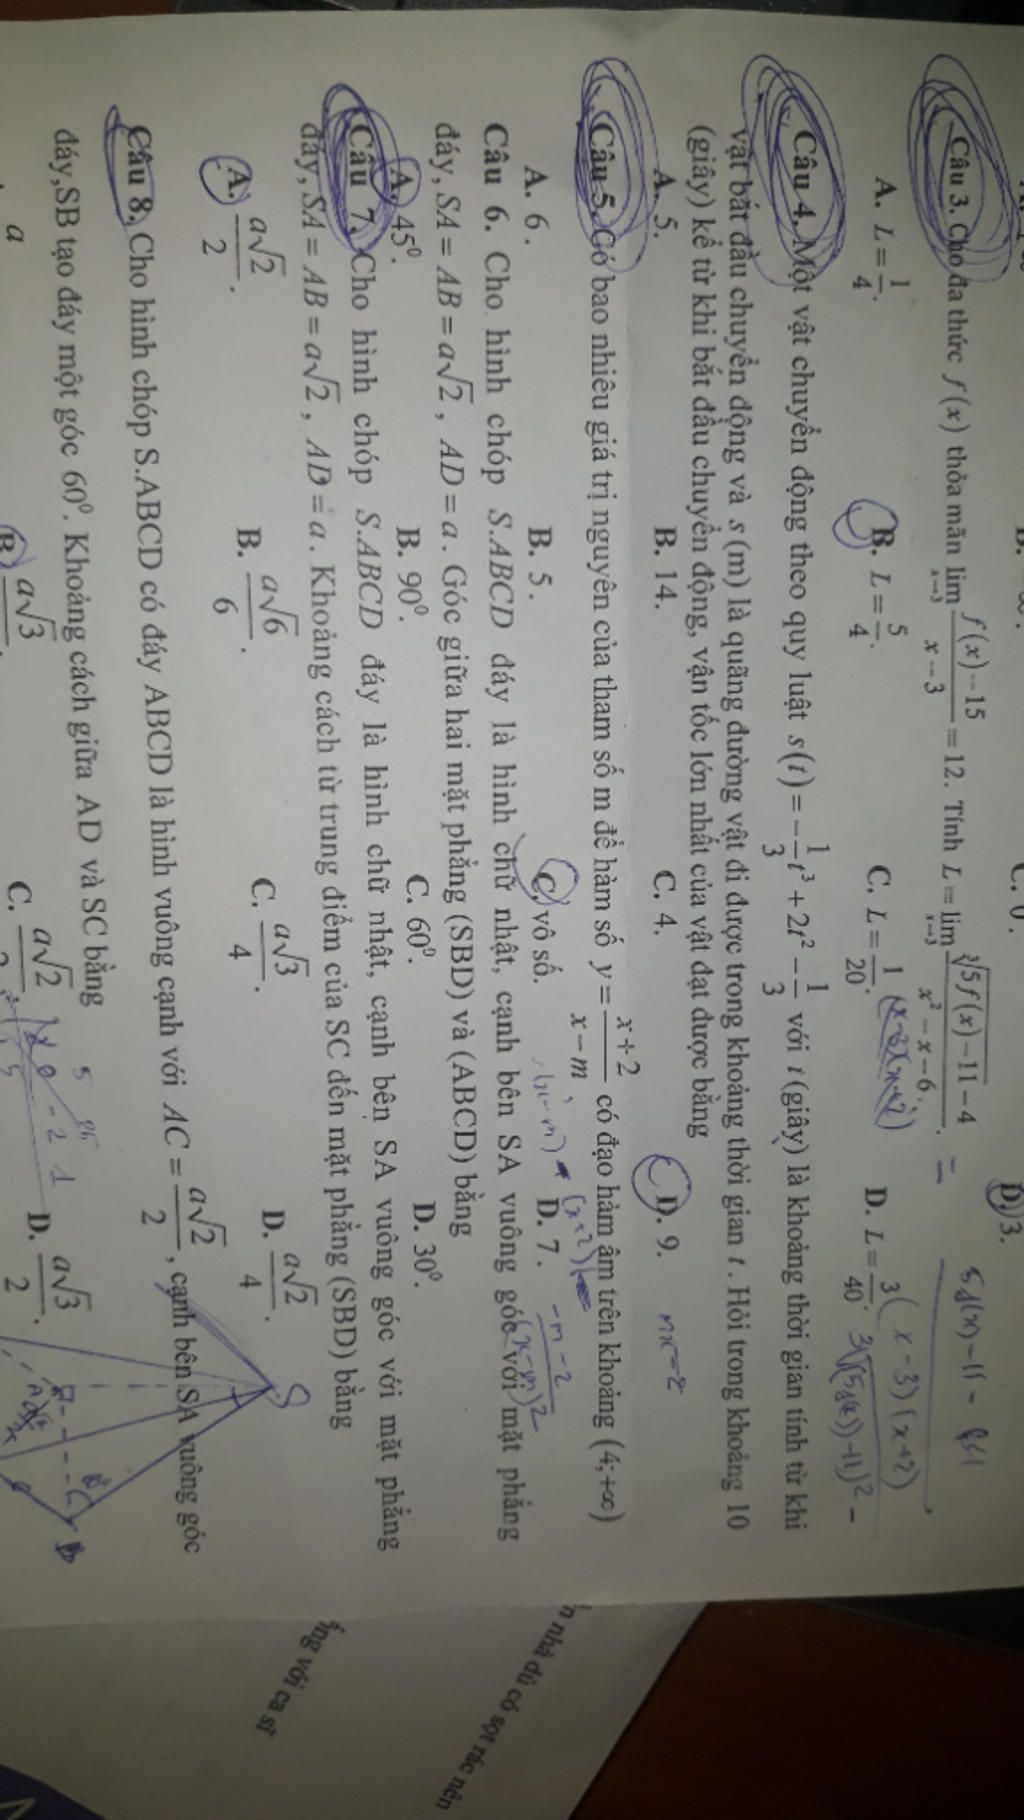 D. 3.
Câu 3. Cho đa thức f(x) thỏa mãn lim_{x→3} (f(x)-15)/(x-3) = 12. Tính L = lim_{x→3} (∛(5f(x)-11)-4)/(x²-x-6). =
A. L = 1/4. B. L = 5/4. C. L = 1/20. D. L = 3/40.
(x-3)(x+2)
Câu 4. Một vật chuyển động theo quy luật s(t) = -1/3 t³ + 2t² - 1/3 với t (giây) là khoảng thời gian tính từ khi
vật bắt đầu chuyển động và s (m) là quãng đường vật đi được trong khoảng thời gian t. Hỏi trong khoảng 10
(giây) kể từ khi bắt đầu chuyển động, vận tốc lớn nhất của vật đạt được bằng
A. 5. B. 14. C. 4. D. 9.
Câu 5. Có bao nhiêu giá trị nguyên của tham số m để hàm số y = (x+2)/(x-m) có đạo hàm âm trên khoảng (4;+∞)
A. 6. B. 5. C. vô số. D. 7.
-m-2
(x-m)²
Câu 6. Cho hình chóp S.ABCD đáy là hình chữ nhật, cạnh bên SA vuông góc với mặt phẳng
đáy, SA = AB = a√2, AD = a. Góc giữa hai mặt phẳng (SBD) và (ABCD) bằng
A. 45⁰. B. 90⁰. C. 60⁰. D. 30⁰.
Câu 7. Cho hình chóp S.ABCD đáy là hình chữ nhật, cạnh bên SA vuông góc với mặt phẳng
đáy, SA = AB = a√2, AD = a. Khoảng cách từ trung điểm của SC đến mặt phẳng (SBD) bằng
A. a√2/2. B. a√6/6. C. a√3/4. D. a√2/4.
Câu 8. Cho hình chóp S.ABCD có đáy ABCD là hình vuông cạnh với AC = a√2/2, cạnh bên SA vuông góc
đáy,SB tạo đáy một góc 60⁰. Khoảng cách giữa AD và SC bằng
a B. a√3 C. a√2 D. a√3/2.
S
n nhà dù có sọt rác nên
ứng với ca sĩ